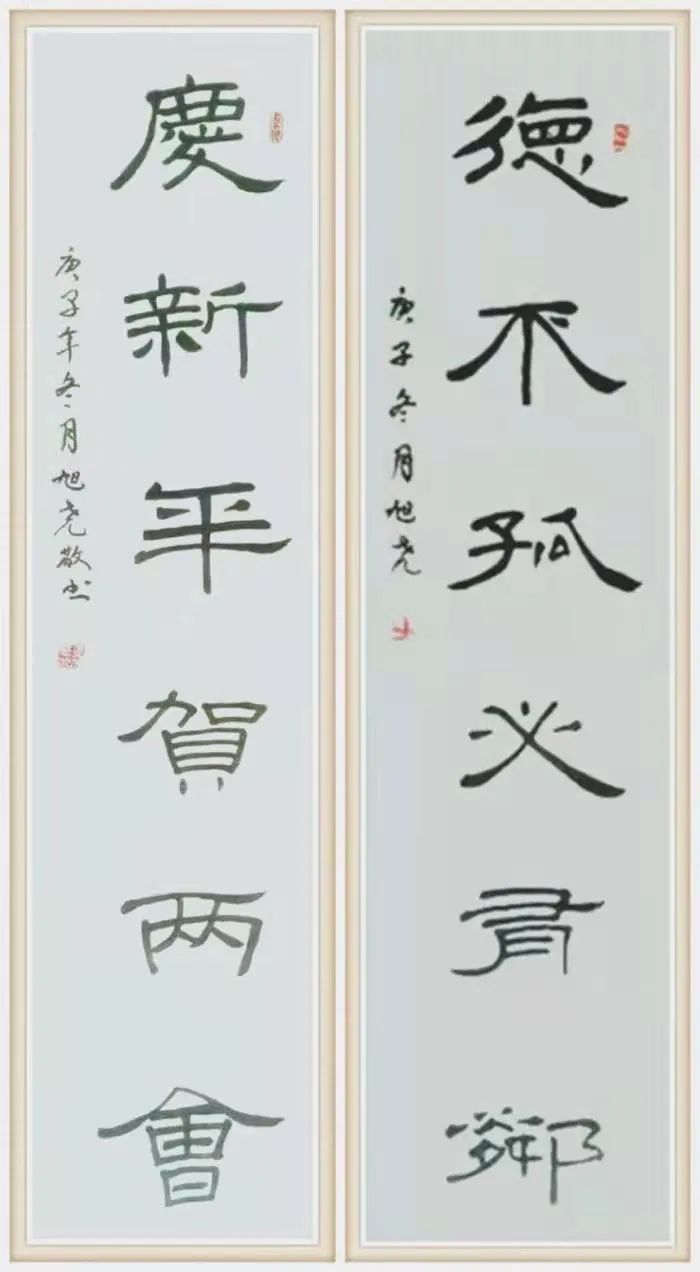 德不孤必有鄰
庚子冬月旭尧
慶新年賀两會
庚子年冬月旭尧敬书